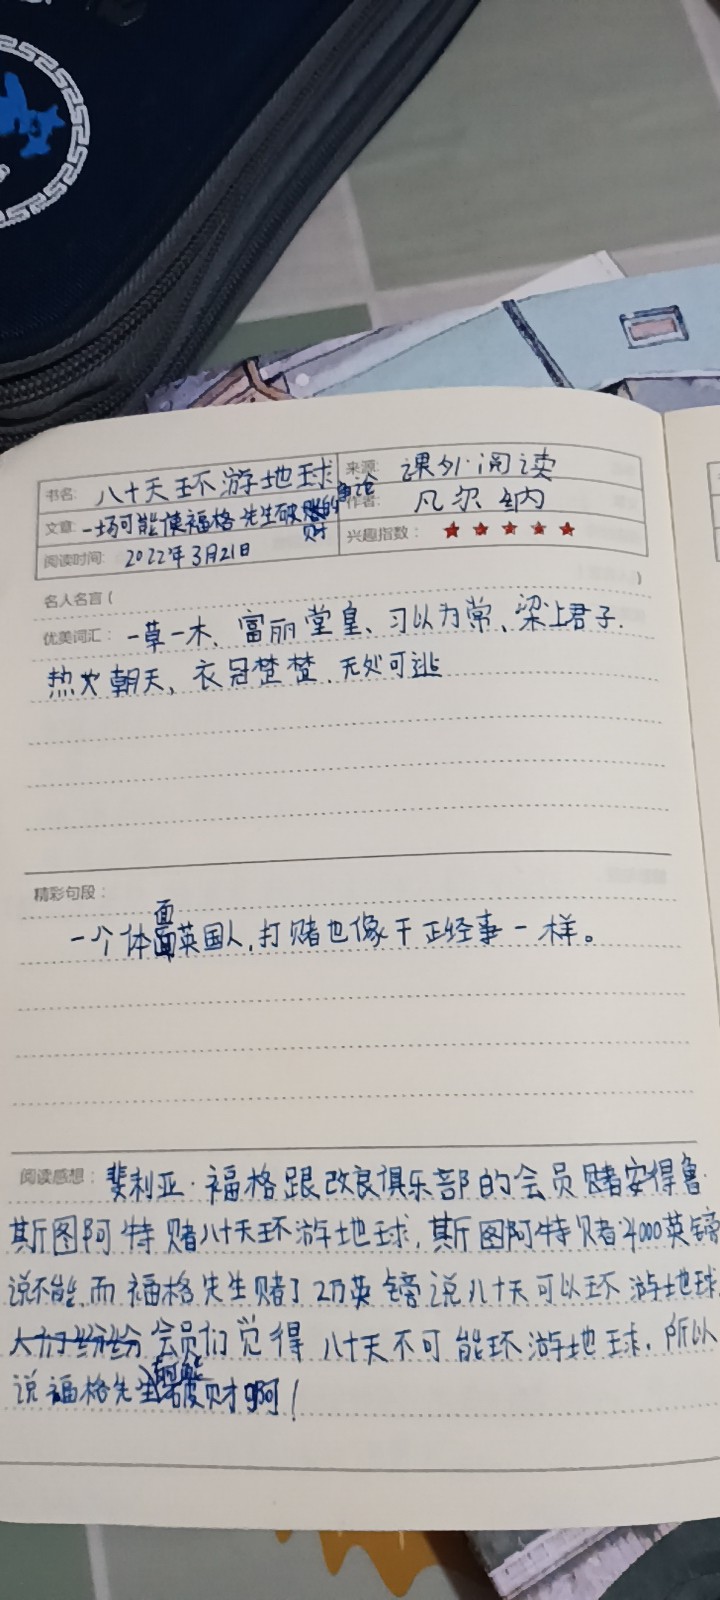 书名: 八十天环游地球 来源: 课外阅读
文章: 一场可能使福格先生破财的争论 作者: 凡尔纳
阅读时间: 2022年3月21日 兴趣指数: ★★★★★
名人名言 ( )
优美词汇: 一草一木、富丽堂皇、习以为常、梁上君子.
热火朝天、衣冠楚楚.无处可逃
精彩句段:
一个体面英国人,打赌也像干正经事一样。
阅读感想: 斐利亚·福格跟改良俱乐部的会员赌安得鲁·
斯图阿特赌八十天环游地球,斯图阿特赌4000英镑
说不能,而福格先生赌了2万英镑说八十天可以环游地球.
大家们纷纷会员们觉得八十天不可能环游地球.所以
说福格先生可能破财啊!